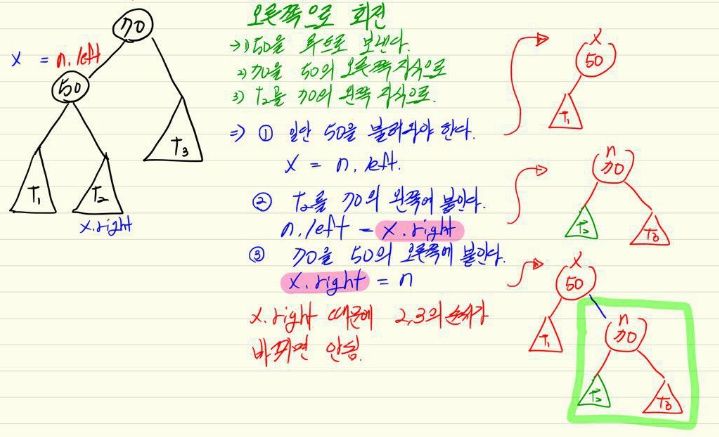 오른쪽으로 회전
⇒ 1) 50을 루트로 보낸다.
2) 70을 50의 오른쪽 자식으로
3) T₂를 70의 왼쪽 자식으로.
⇒ ① 일단 50을 불러와야 한다.
x = n.left.
② T₂를 70의 왼쪽에 붙인다.
n.left = x.right
③ 70을 50의 오른쪽에 붙인다.
x.right = n
x.right 때문에 2,3의 순서가
바뀌면 안됨.
70
x = n.left
50
T₁
T₂
T₃
x.right
x
50
T₁
n
70
T₂
T₃
x
50
T₁
n
70
T₂
T₃